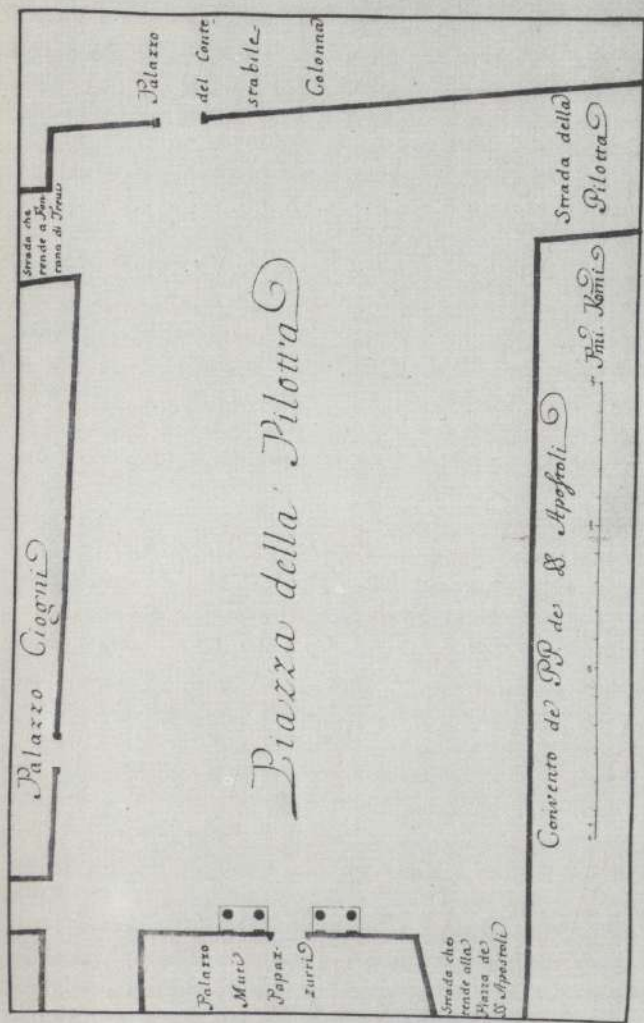 Palazzo Ciogni
Strada che
tende a Fon
tana di Treui
Palazzo
del Conte
stabile
Colonna
Piazza della Pilotta
Palazzo
Muti
Papaz-
zurri
Strada che
tende alla
Piazza de
SS Apostoli
Convento de PP. de SS Apostoli
Pmi. Romi
Strada della
Pilotta